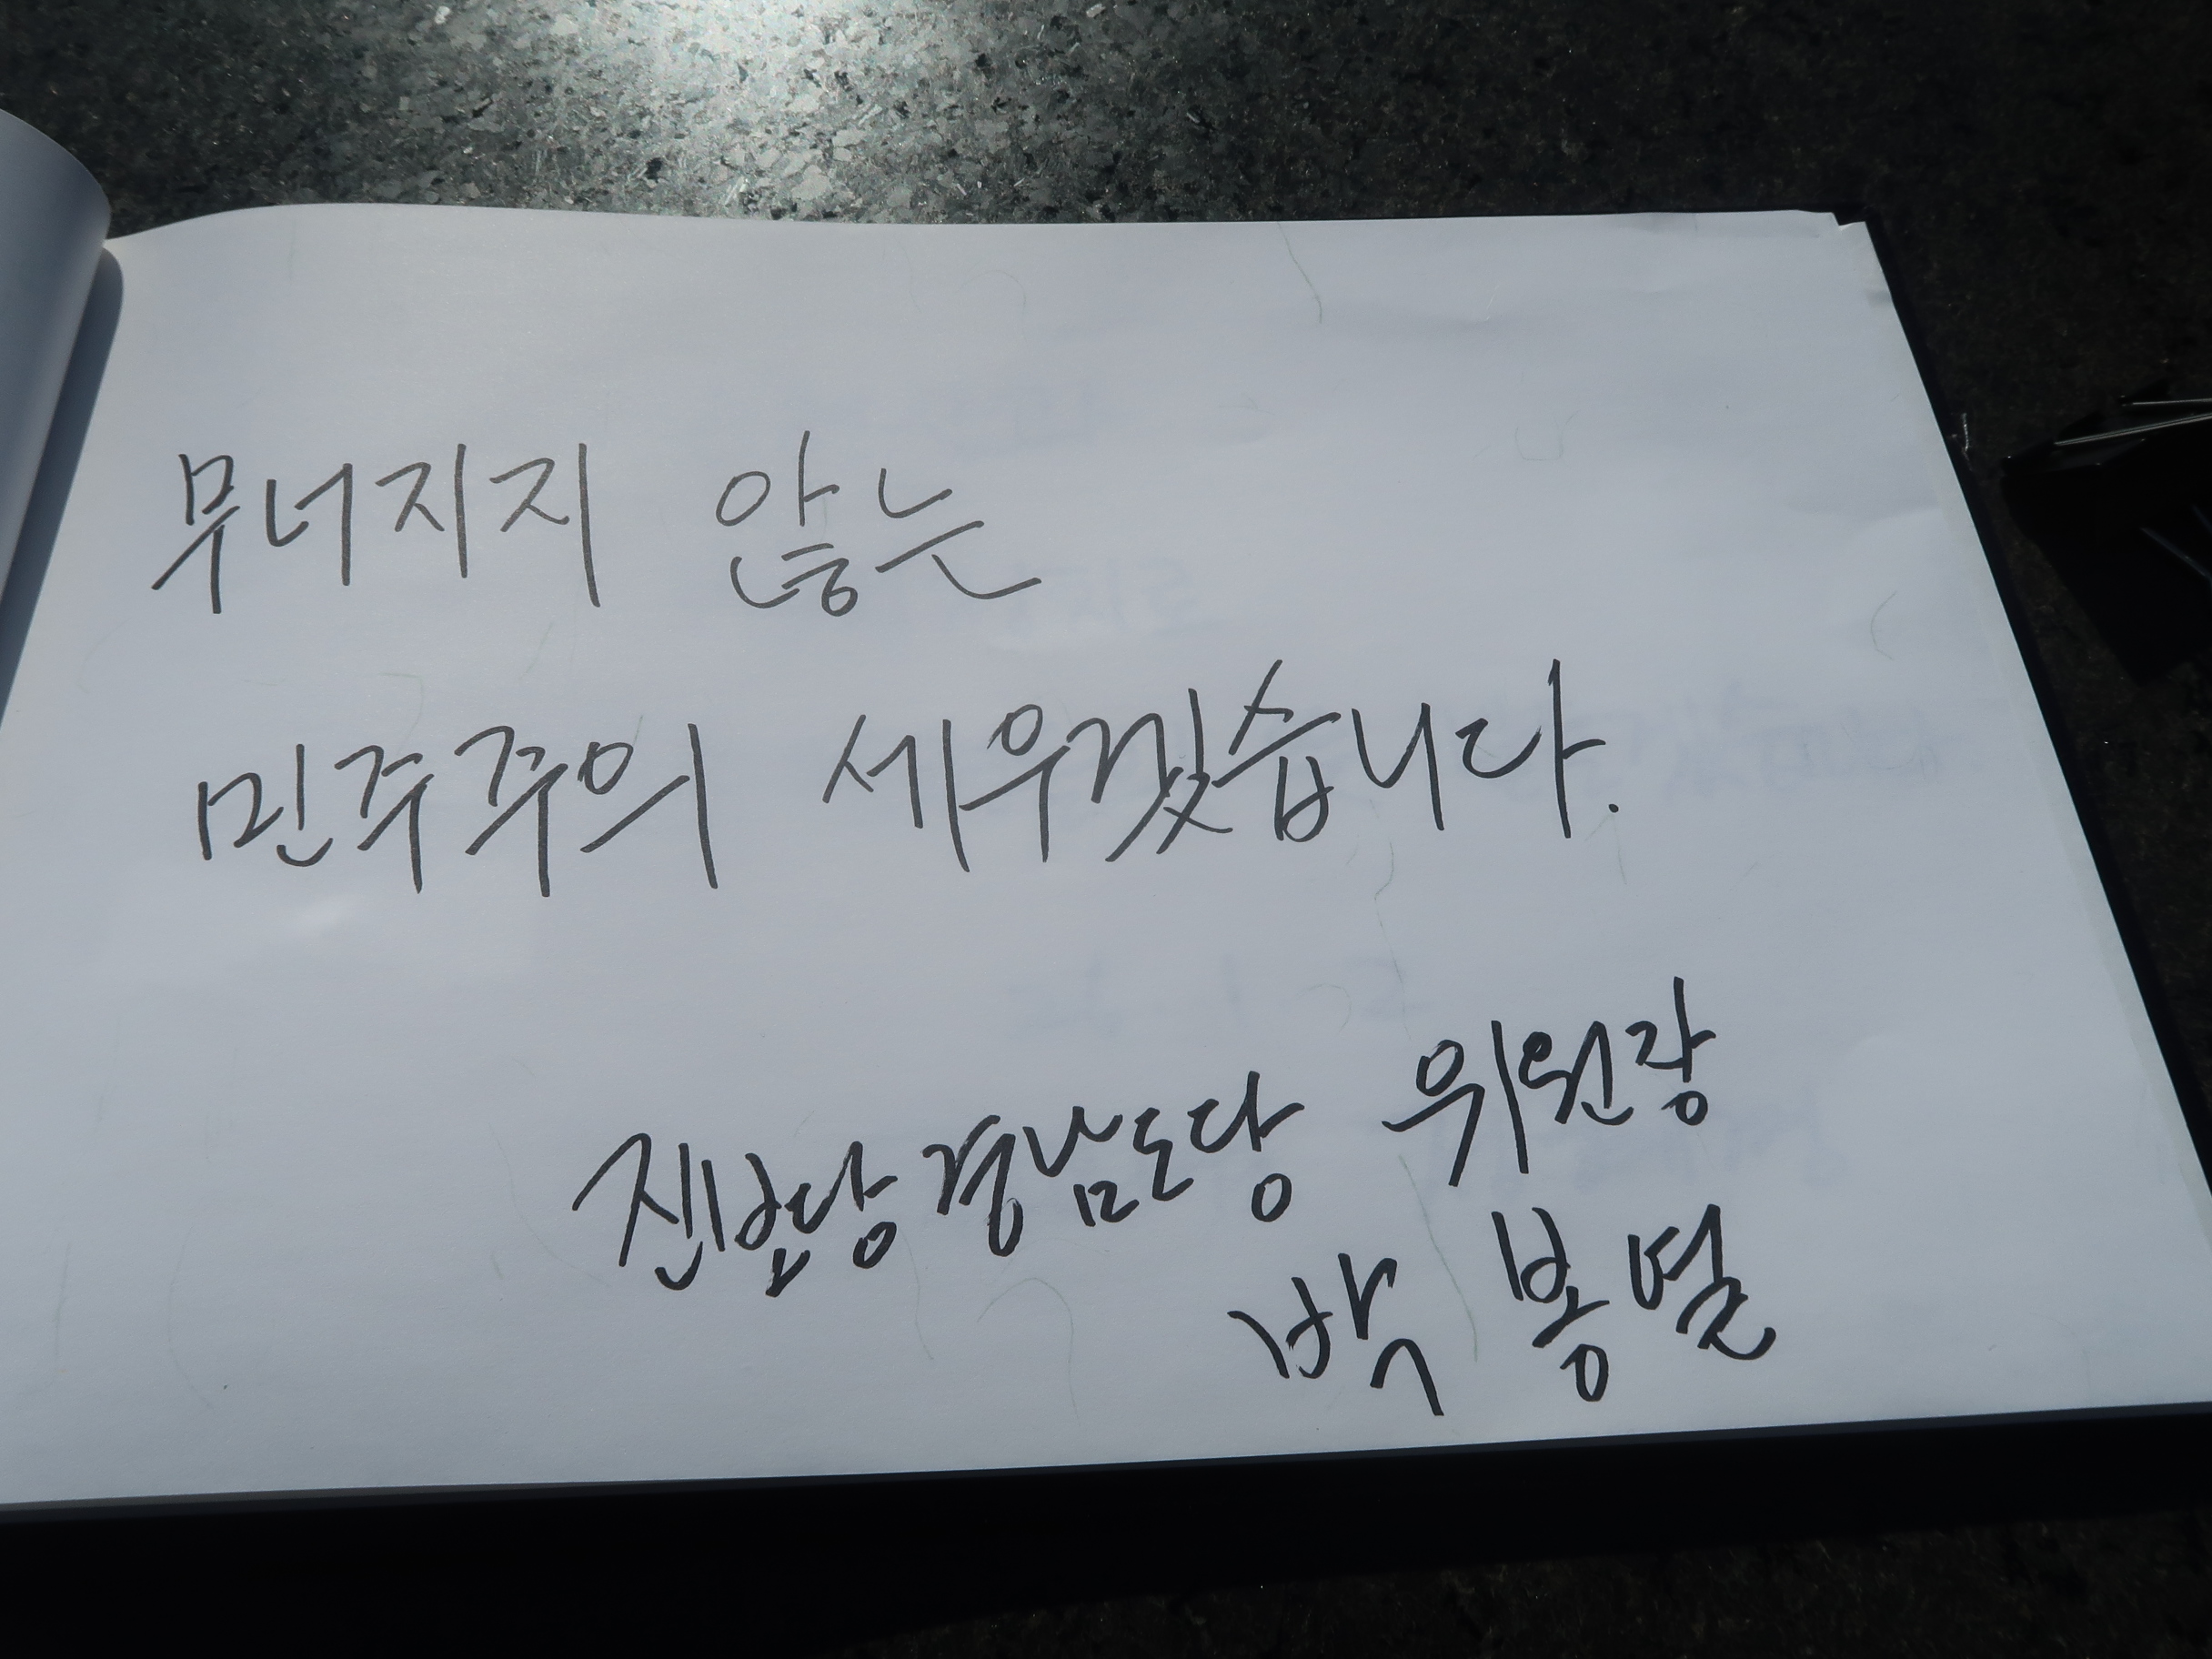 무너지지 않는
민주주의 세우겠습니다.
진보당 경남도당 위원장
박봉열